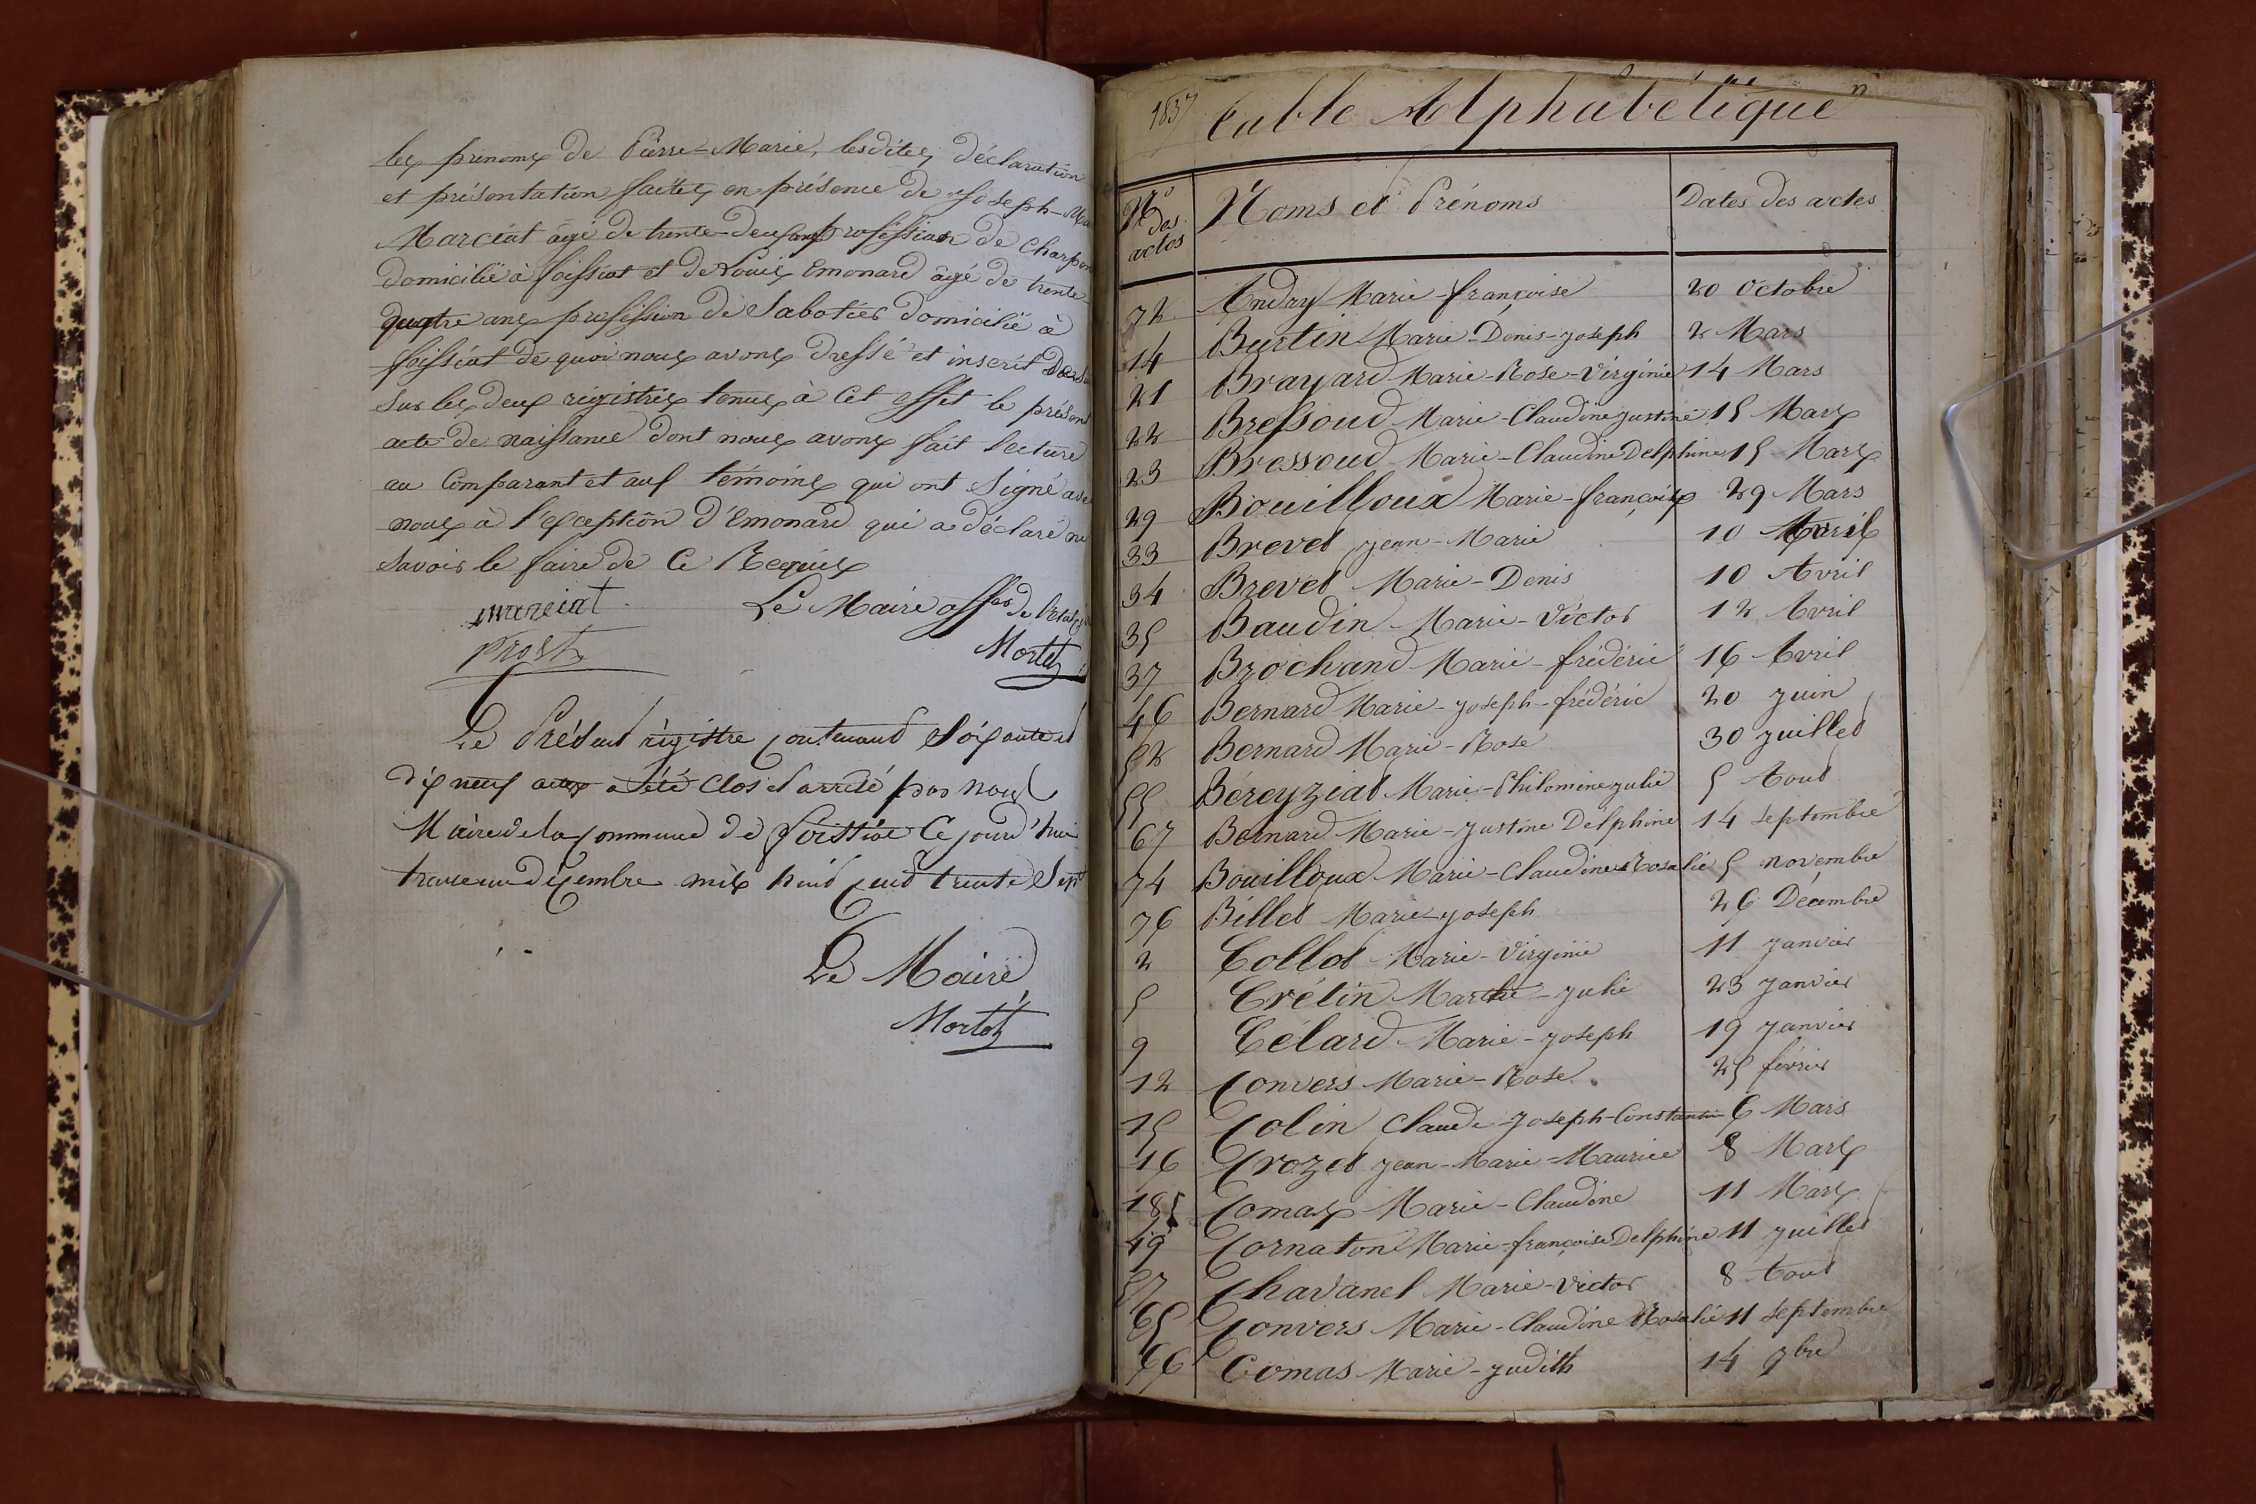 les prenoms de Pierre-Marie, lesdites déclaration
et présentation faites en présence de Joseph-Ma
Marciat âgé de trente-deux ans profession de Charpen
domicilié à foissiat et de Louis Emonard âgé de trente
quatre ans profession de Sabotier domicilié à
foissiat de quoi nous avons dressé et inscrit
sur les deux registres tenus à cet effet le présent
acte de naissance dont nous avons fait lecture
au Comparant et aux témoins qui ont signé avec
nous à l'exception d'Emonard qui a déclaré ne
savoir le faire de ce Requis
marciat Le Maire offer de l'Etat
Prost Morlet
Le Présent régistre contenant Soixante et
dix neuf actes a été clos et arrêté par nous
Maire de la Commune de foissiat Ce jourd'hui
trente un décembre mil huit cent trente Sept
Le Maire
Morlet
1837 Table Alphabétique
Nos des actes Noms et Prénoms Dates des actes
72 Andry Marie-françoise 20 Octobre
14 Burtin Marie-Denis-joseph 2 Mars
21 Brayard Marie-Rose-Virginie 14 Mars
22 Bressoud Marie-Claudine justine 15 Mars
23 Bressoud Marie-Claudine Delphine 15 Mars
29 Bouilloux Marie-françoise 29 Mars
33 Brevet jean-Marie 10 Avril
34 Brevet Marie-Denis 10 Avril
35 Baudin Marie-Victor 12 Avril
37 Brochand Marie-frédéric 16 Avril
46 Bernard Marie-joseph-frédéric 20 juin
52 Bernard Marie-Rose 30 juillet
55 Béreyziat Marie-Philomine julie 5 Aout
67 Bernard Marie-justine Delphine 14 septembre
74 Bouilloux Marie-Claudine Rosalie 5 novembre
76 Billet Marie-joseph 26 Décembre
2 Collot Marie-Virginie 11 janvier
5 Crétin Marthe-julie 23 janvier
9 Célard Marie-joseph 19 janvier
12 Convers Marie-Rose 25 févrie
15 Colin Claude-joseph-Constantin 6 Mars
16 Crozet jean-Marie-Maurice 8 Mars
18 Comas Marie-Claudine 11 Mars
49 Cornaton Marie-françoise Delphine 11 juillet
57 Chavanel Marie-Victor 8 Aout
65 Convers Marie-Claudine Rosalie 11 septembre
66 Comas Marie-judith 14 9bre